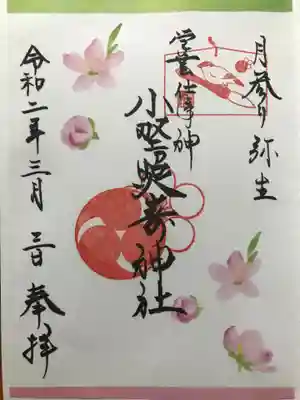 月参り 弥生
学芸仕事神
小野照崎神社
令和二年三月三日 奉拝